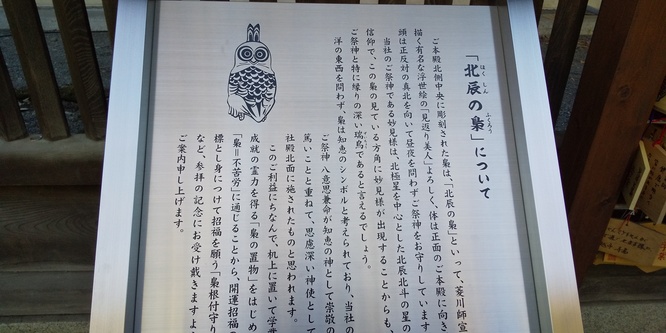 「北辰の梟」について
ほくしん
ふくろう
ご本殿北側中央に彫刻された梟は、「北辰の梟」といって、菱川師宣
描く有名な浮世絵の「見返り美人」よろしく、体は正面のご本殿に向き
頭は正反対の真北を向いて昼夜を問わずご祭神をお守りしています
当社のご祭神である妙見様は、北極星を中心とした北辰北斗の星の
信仰で、この梟の見ている方角に妙見様が出現することからも、
ご祭神と特に縁りの深い瑞鳥であると言えるでしょう。
洋の東西を問わず、梟は知恵のシンボルと考えられており、当社の
ご祭神 八意思兼命が知恵の神として崇敬の
篤いことと重ねて、思慮深い神使として
社殿北面に施されたものと思われます。
このご利益にちなんで、机上に置いて学業
成就の霊力を得る「梟の置物」をはじめ
「梟=不苦労」に通じることから、開運招福の
標とし身につけて招福を願う「梟根付守り
など、参拝の記念にお受け戴きますよ
ご案内申し上げます。